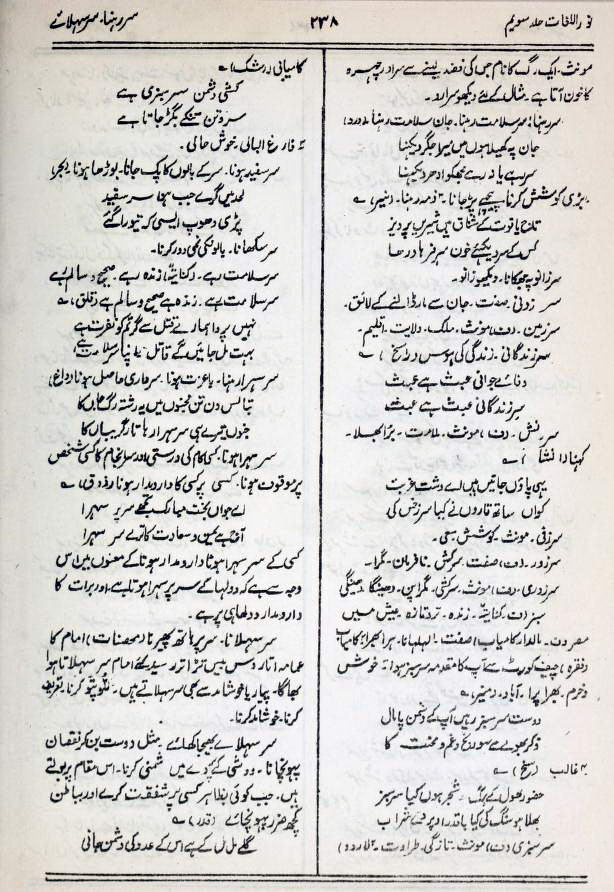 نور اللغات جلد سویم
۲۳۸
سر رہنا۔ سر سہلائے
مونث۔ ایک رگ کا نام جس کی فصد لینے سے سر اور چہرہ
کا خون آتا ہے۔ مثال کے لئے دیکھو سرارد۔
سر رہنا۔ سر سلامت رہنا۔ جان سلامت رہنا
جان پہ کھیلا ہوں میں میرا جگر دیکھنا
سر رہے یا نہ رہے مجھکو ادھر دیکھنا
بڑی کوشش کرنا پیچھے پڑ جانا۔
کس کے سر دیکھئے خون سر فرہاد رہا
سر زانو پہ جھکانا۔ دیکھو زانو۔
سر زدنی۔ صفت۔ جان سے مار ڈالنے کے لائق۔
سرزمین۔ (ف) مونث۔ ملک۔ ولایت۔ اقلیم۔
سر زندگانی۔ زندگی کی ہوس (راسخ) ؎
وفائے جوانی عبث ہے عبث
سر زندگانی عبث ہے عبث
سرزنش۔ (ف) مونث۔ ملامت۔ برا بھلا۔
کہنا (انشا) ؎
یہی پاؤں جائیں ہیں اے دشت غربت
کہاں ساتھ قاروں نے کیا سرزنش کی
سرزنی۔ مونث۔ کوشش۔ سعی۔
سر زور۔ (ف) صفت۔ سرکش۔ نافرمان۔ گمراہ۔
سر زوری۔ (ف) مونث۔ سرکشی۔ گمراہی۔ دھینگا دھینگی
سبز (ف) کنایۃً۔ زندہ۔ تر و تازہ۔ عیش میں
مصروف۔ مالدار کامیاب) صفت۔ لہلہاتا۔ ہرا بھرا کامیاب
(فقرہ) چیف کورٹ سے آپ کا مقدمہ سرسبز ہوا۔ خوش
و خرم۔ بھرا پرا۔ آباد۔ (منیر) ؎
دوست سرسبز رہیں آپ کے دشمن پامال
ذکر بھولے سے نہو رنج و غم و محنت کا
۴ غالب
سرسبزی (ف) مونث۔ تازگی۔ طراوت۔
کامیابی (رشک) ؎
کشی دشمن سر سبزی ہے
سر و تن تنکے بگڑ جاتا ہے
فارغ البالی۔ خوش حالی۔
سر سفید ہونا۔ سر کے بالوں کا پک جانا۔ بوڑھا ہونا (بحر)
لحد میں گرے جب ہوا سر سفید
پڑی دھوپ ایسی کہ تیورا گئے
سر سکھانا۔ بالونکی نمی دور کرنا۔
سر سلامت رہے۔ (کنایۃً) زندہ رہے۔ صحیح و سالم رہے
سر سلامت ہے۔ زندہ ہے صحیح و سالم ہے (قلق) ؎
نہیں پروا ہمارے قتل سے گر تم کو نفرت ہے
بہت مل جائیں گے قاتل
سر سہرا رہنا۔ باعزت ہونا۔ سرداری حاصل ہونا (داغ)
تھا اس دن تن مجنوں میں یہ رشتہ رگ جاں کا
جنوں تیرے ہی سر سہرا رہا تار گریباں کا
سر سہرا ہونا۔ کسی کام کی درستی اور سرانجام کا کسی شخص
پر موقوف ہونا۔ کسی پر کسی کا دارومدار ہونا (ذوق) ؎
اے جواں بخت مبارک تجھے سر پر سہرا
آج ہے یمن و سعادت کا ترے سر سہرا
کسی کے سر سہرا ہونا دارومدار ہونا کے معنوں میں اس
وجہ سے ہے کہ دولہا کے سر پر سہرا ہوتا ہے اور برات کا
دارومدار دولھا ہی پر ہے۔
سر سہلانا۔ سر پر ہاتھ پھیرنا (محصنات) امام کا
عمامہ اتار دس بیس تڑاتڑ رسید کیئے امام سر سہلاتا ہوا
بھاگا۔ پیار یا خوشامد سے بھی سر سہلاتے ہیں۔ للو پتو کرنا۔ تعریف
کرنا۔ خوشامد کرنا۔
سر سہلائے بھیجا کھائے۔ مثل دوست بن کر نقصان
پہونچانا۔ دوستی کے پردے میں دشمنی کرنا۔ اس مقام پر بولتے
ہیں۔ جب کوئی بظاہر کسی پر شفقت کرے اور بباطن
کچھ ضرر پہونچائے (قدر) ؎
گلے مل مل کے ہے اس کے عدو کی دشمن جانی